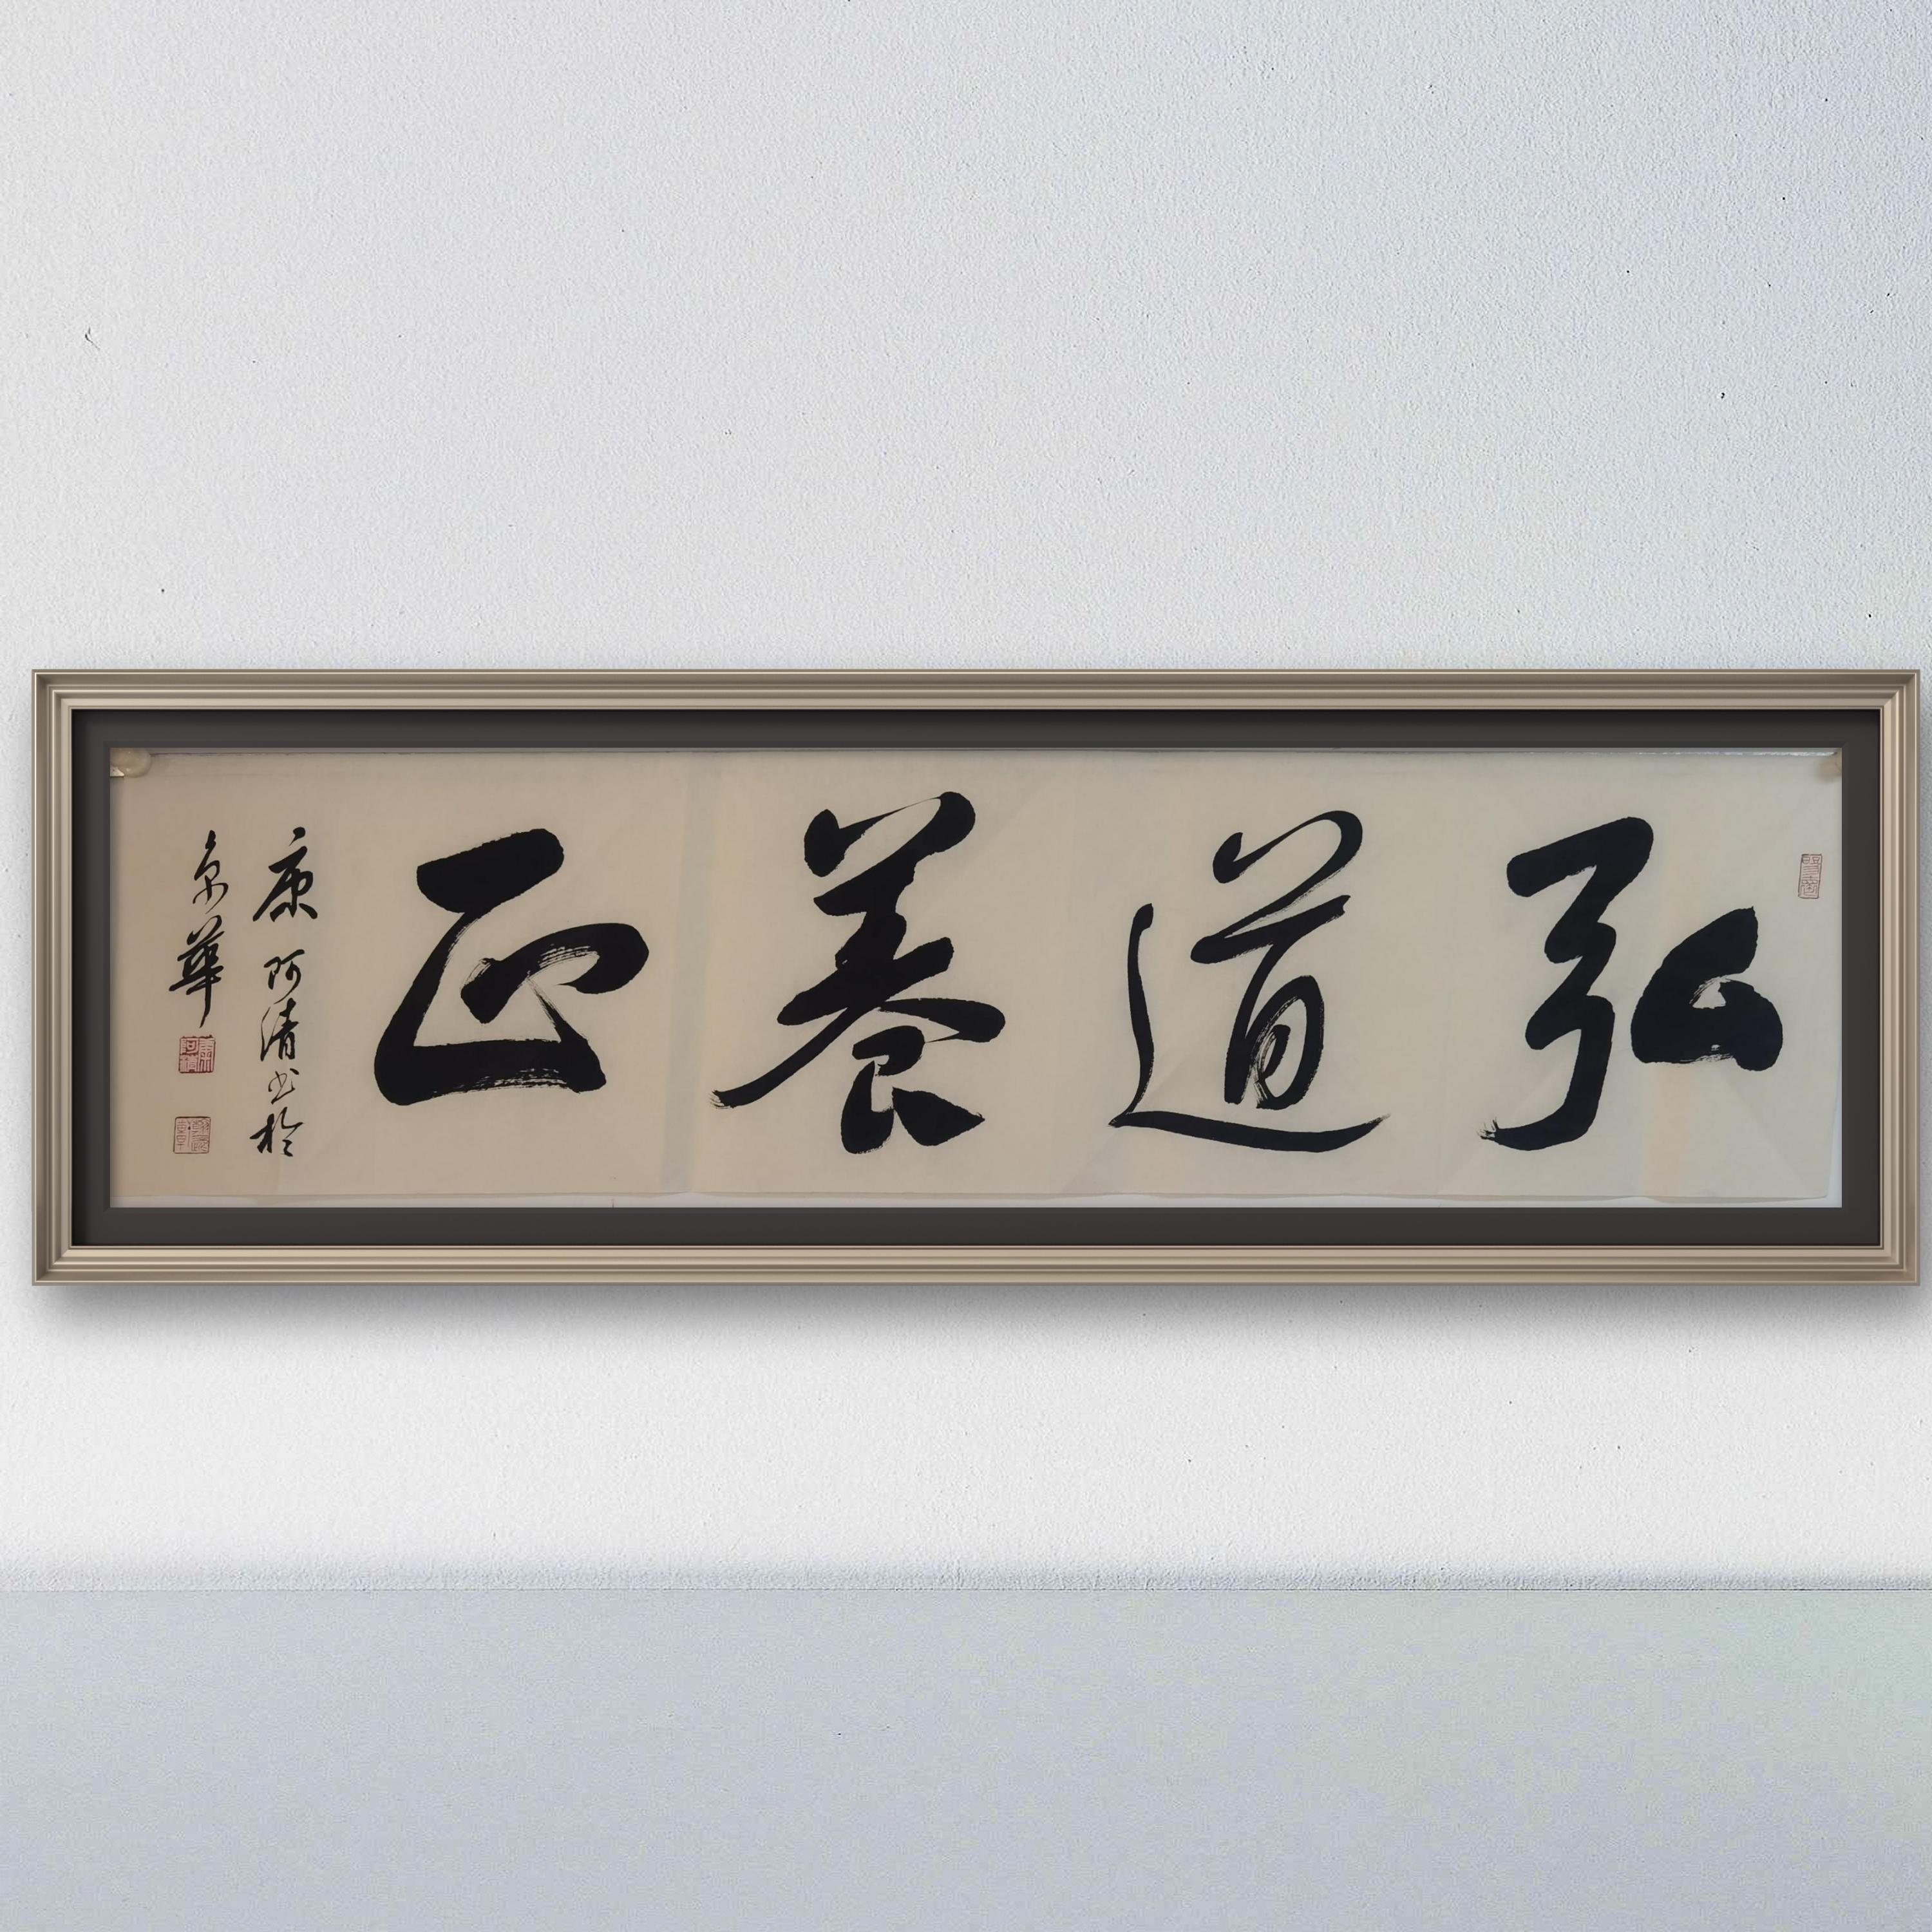 弘道養正
康阿清书於
京華